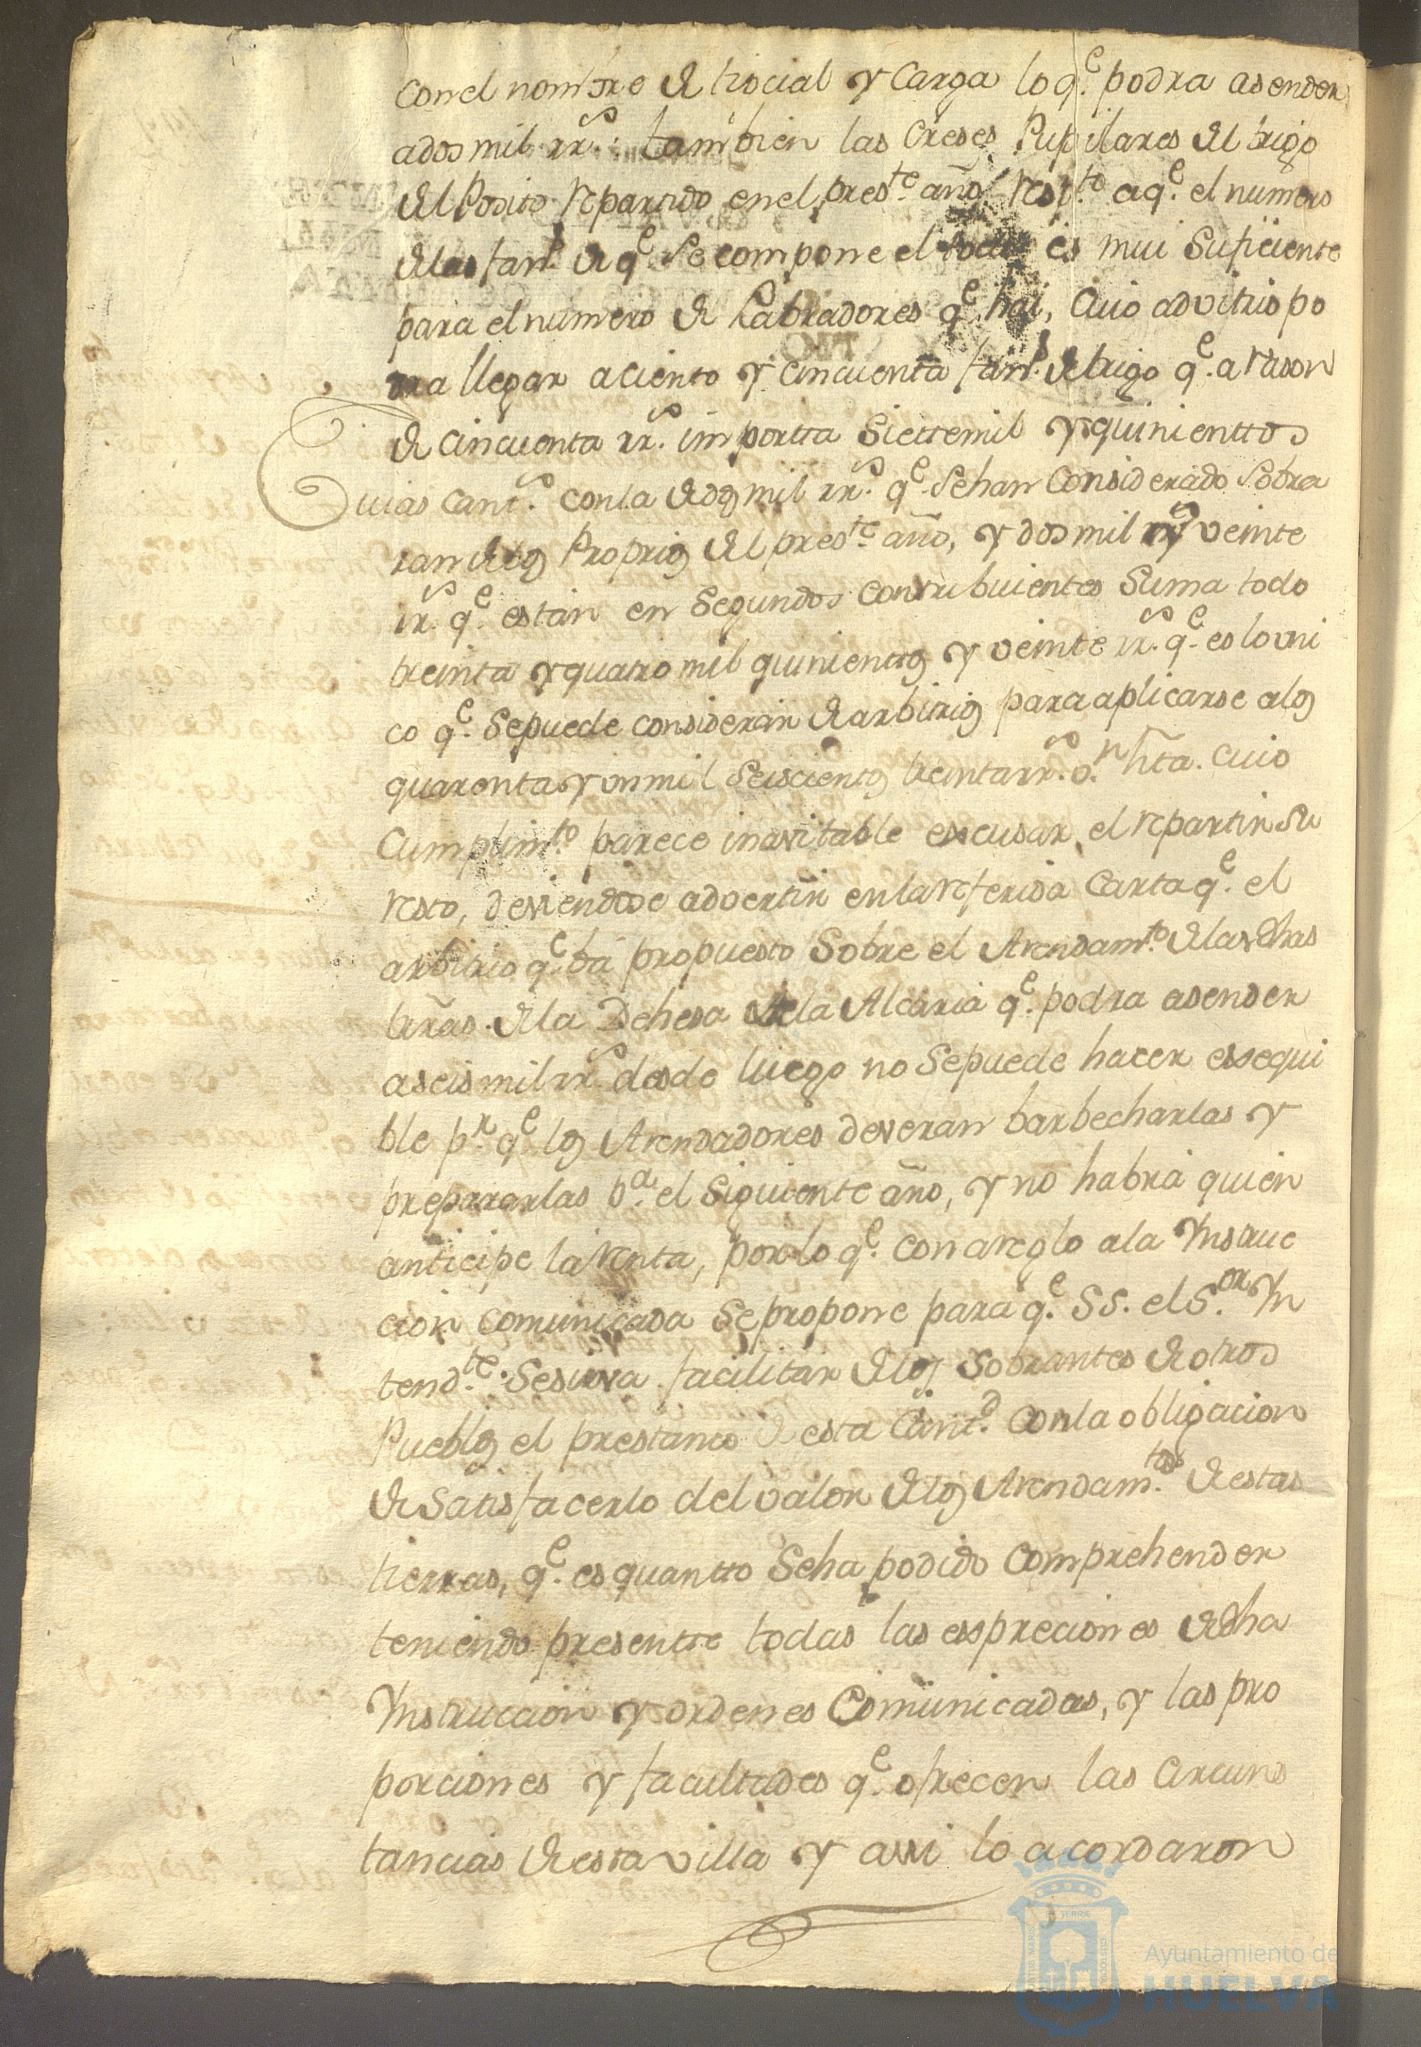 con el nombre de trocial y Carga lo q.e podra asender
a dos mil rr.s: tambien las Creses Pupilares del trigo
del Posito repartido en el pres.te año resp.to a q.e el numero
de las fan.s de q.e se compone el es mui suficiente
para el numero de Labradores q.e hai, Cuio advitrio po
dra llegar a ciento y cincuenta fan.s de trigo q.e a rason
de cincuenta rr.s importta Siettemil y quinienttos
Cuias cant.s con la de dos mil rr.s q.e Sehan Considerado Sobra
ran de los Proprios del pres.te año, y dos mil y veinte
rr.s q.e estan en Segundos contribuientes Suma todo
treinta y quatro mil quinienttos y veinte rr.s q.e es lo uni
co q.e Sepuede considerar de arbitrios para aplicarse a los
quarenta y un mil Seiscientos treinta rr.s v.n hta. Cuio
Cumplim.to parece inavitable escusar el repartir su
resto, deviendose advertir en la referida Carta q.e el
arbitrio q.e ba propuesto Sobre el Arrendam.to de las dhas
tierras. de la Dehesa de la Alcaria q.e podra asender
a seis mil rr.s desde luego no Sepuede hacer essequi
ble p.r q.e los Arrendadores deveran barbecharlas y
prepararlas p.a el Siguiente año, y no habrá quien
anticipe la renta, por lo q.e con areglo a la Ynstruc
cion comunicada Se propone para q.e SS. el S.or Yn
tend.te Sesirva facilitar de los Sobrantes de otros
Pueblos el prestamo de esta Cant.d con la obligacion
de Satisfacerlo del valor de los Arrendam.tos de estas
tierras, q.e es quantto Seha podido Comprehender
teniendo presentte todas las esspreciones de dha
Ynstruccion y ordenes Comunicadas, y las pro
porciones y facultades q.e ofrecen las Circuns
tancias de esta villa y assi lo acordaron
Ayuntamiento de
HUELVA